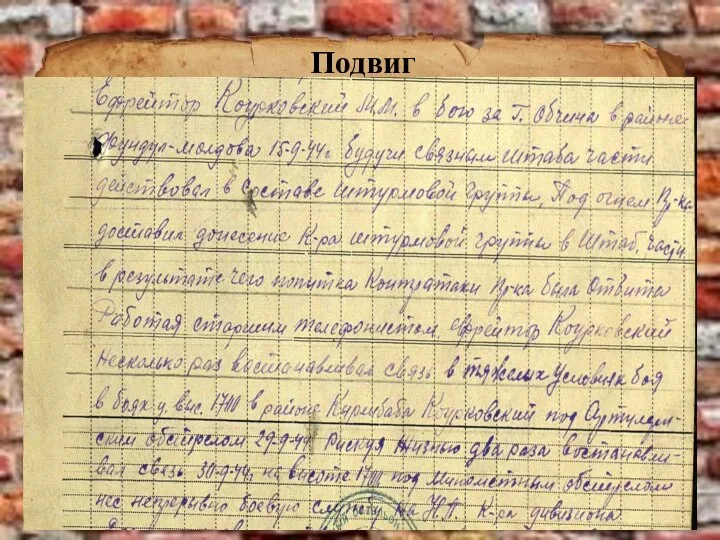 Подвиг
Ефрейтор Коурковский М.М. в бою за г. Обчина в районе
Фундул-Молдова 15-9-44г будучи связным штаба части
действовал в составе штурмовой группы, Под огнем Пр-ка
доставил донесение К-ра штурмовой группы в Штаб. части
в результате чего попытка Контратаки Пр-ка была Отбита
Работая старшим телефонистом, ефрейтор Коурковский
несколько раз востанавливал связь в тяжелых условиях боя
в боях у выс. 1700 в районе Кирлибаба Коурковский под Артилери-
ским обстрелом 29-9-44 Рискуя жизнью два раза востанови-
вал связь 30-9-44г на высоте под минометным обстрелом
нес непрерывно боевую службу на Н.П. К-ра дивизиона.